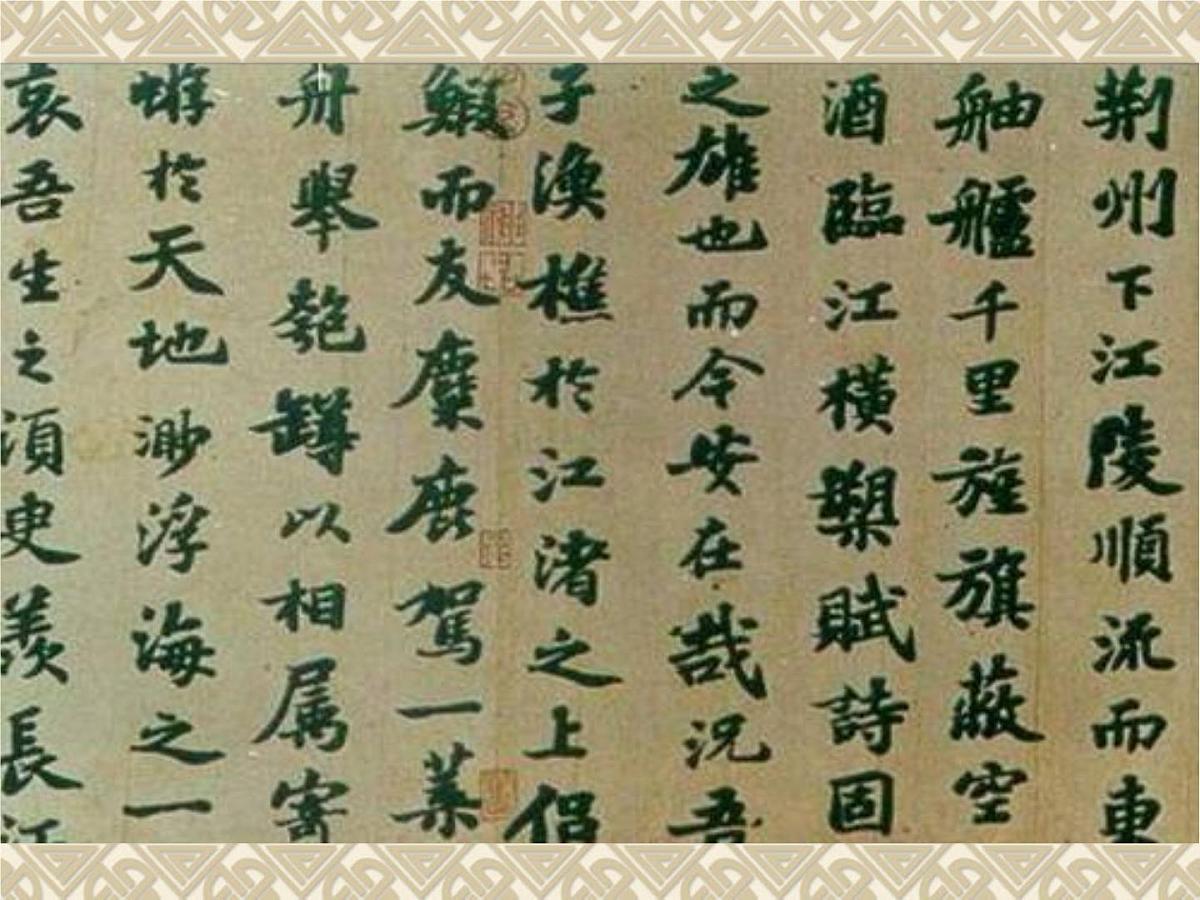 荆州下江陵順流而東
舳艫千里旌旗蔽空
酒臨江橫槊賦詩固
之雄也而今安在哉況吾
子漁樵於江渚之上侶
鰕而友麋鹿駕一葉
舟舉匏罇以相属寄
蝣於天地渺浮海之一
哀吾生之須臾羨長江